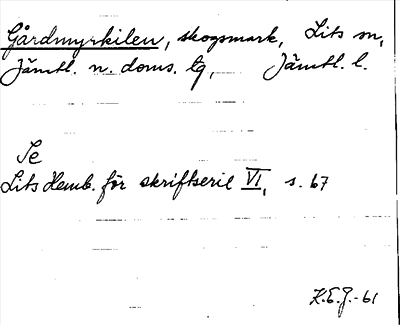 Gårdmyrkilen, skogsmark, Lits sn,
Jämtl. n. doms. tg, Jämtl. l.
Se
Lits Hemb. för skriftserie VI, s. 67
K.E.J.-61